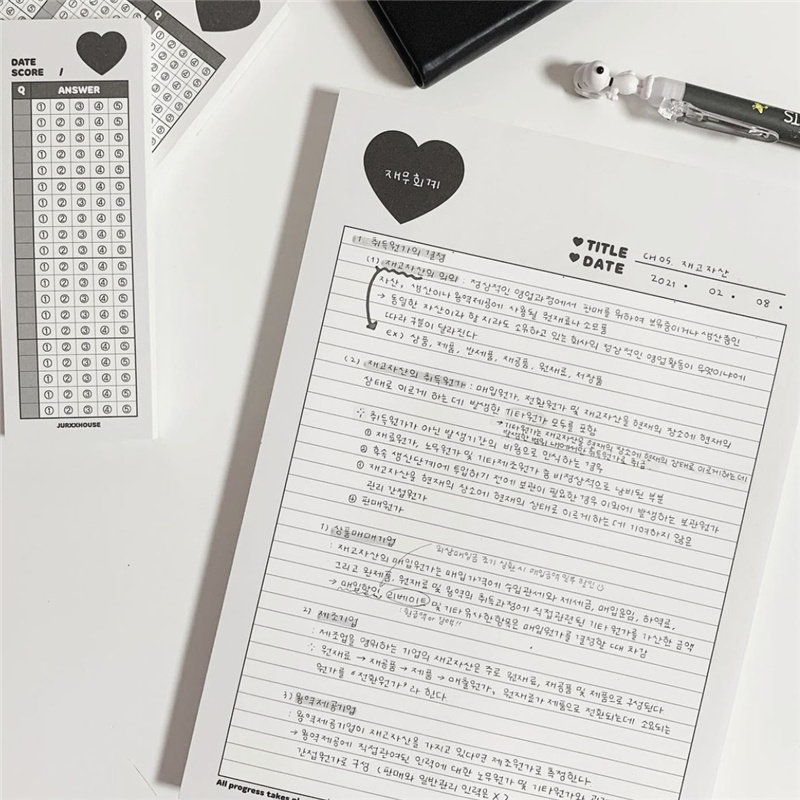 DATE
SCORE /
Q ANSWER
① ② ③ ④ ⑤
① ② ③ ④ ⑤
① ② ③ ④ ⑤
① ② ③ ④ ⑤
① ② ③ ④ ⑤
① ② ③ ④ ⑤
① ② ③ ④ ⑤
① ② ③ ④ ⑤
① ② ③ ④ ⑤
① ② ③ ④ ⑤
① ② ③ ④ ⑤
① ② ③ ④ ⑤
① ② ③ ④ ⑤
① ② ③ ④ ⑤
① ② ③ ④ ⑤
① ② ③ ④ ⑤
① ② ③ ④ ⑤
① ② ③ ④ ⑤
① ② ③ ④ ⑤
① ② ③ ④ ⑤
JURXXHOUSE
재무회계
TITLE CH 05. 재고자산
DATE 2021 · 02 · 08 ·
1. 취득원가의 결정
(1) 재고자산의 의의 : 정상적인 영업과정에서 판매를 위하여 보유중이거나 생산중인
자산, 생산이나 용역제공에 사용될 원재료나 소모품
→ 동일한 자산이라 할 지라도 소유하고 있는 회사의 정상적인 영업활동이 무엇이냐에
따라 구분이 달라진다
ex) 상품, 제품, 반제품, 재공품, 원재료, 저장품
(2) 재고자산의 취득원가 : 매입원가, 전환원가 및 재고자산을 현재의 장소에 현재의
상태로 이르게 하는데 발생한 기타원가 모두를 포함
→ 기타원가는 재고자산을 현재의 장소에 현재의 상태로 이르게하는데
발생한 범위 내에서만 취득원가로 취급
∵ 취득원가가 아닌 발생기간의 비용으로 인식하는 경우
① 재료원가, 노무원가 및 기타제조원가 중 비정상적으로 낭비된 부분
② 후속 생산단계에 투입하기 전에 보관이 필요한 경우 이외에 발생하는 보관원가
③ 재고자산을 현재의 장소에 현재의 상태로 이르게하는데 기여하지 않은
관리 간접원가
④ 판매원가
1) 상품매매기업
외상매입금 조기 상환 시 매입금액 일부 할인
: 재고자산의 매입원가는 매입가격에 수입관세와 제세금, 매입운임, 하역료,
그리고 완제품, 원재료 및 용역의 취득과정에 직접관련된 기타원가를 가산한 금액
→ 매입할인, 리베이트 및 기타유사한항목은 매입원가를 결정할 때 차감
2) 제조기업
: 제조업을 영위하는 기업의 재고자산은 주로 원재료, 재공품 및 제품으로 구성된다
∵ 원재료 → 재공품 → 제품 → 매출원가. 원재료가 제품으로 전환되는데 소요되는
원가를 "전환원가"라 한다
3) 용역제공기업
: 용역제공기업이 재고자산을 가지고 있다면 제조원가로 측정한다
→ 용역제공에 직접관여된 인력에 대한 노무원가 및 기타원가와
간접원가로 구성 (판매와 일반관리 인력은 X)
All progress takes